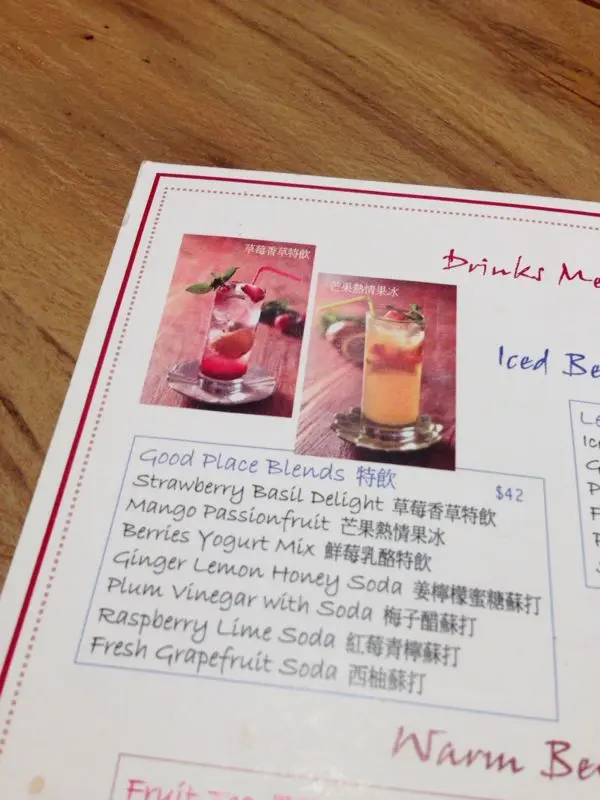 草莓香草特飲
芒果熱情果冰
Drinks
Iced
Good Place Blends 特飲 $42
Strawberry Basil Delight 草莓香草特飲
Mango Passionfruit 芒果熱情果冰
Berries Yogurt Mix 鮮莓乳酪特飲
Ginger Lemon Honey Soda 姜檸檬蜜糖蘇打
Plum Vinegar with Soda 梅子醋蘇打
Raspberry Lime Soda 紅莓青檸蘇打
Fresh Grapefruit Soda 西柚蘇打
Warm
Fruit Tea